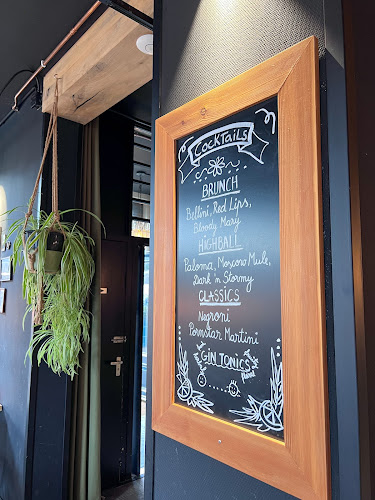 COCKTAILS
BRUNCH
Bellini, Red Lips,
Bloody Mary
HIGHBALL
Paloma, Moscow Mule,
Dark 'n Stormy
CLASSICS
Negroni
Pornstar Martini
GIN TONICS